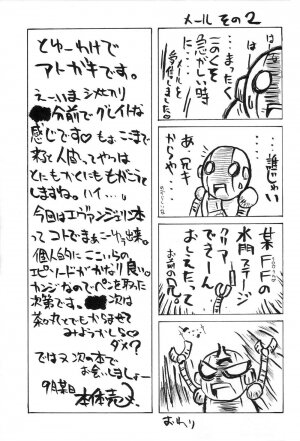 メール その2
は は
まったく
このくそ
急がしい時
メールを
受信しました。
誰じゃい
あ、兄キ
からじゃ
某FFの
水門ステージ
クリアー
できーん
おしえたって
お前の兄。
おわり
とゆーわけで
アトガキです。
えーいま
分前で グレイトな
感じです♡ もぉここまで
来ると人間ってやつは
とにもかくにももがこうと
しますね。ハイ…。
今回はエヴァンゲリ本
って コトでまぁこーゆう出来。
個人的にここいらの
エピソードがかなり良い
カンジなのでペンを取った
次第です。 次は
茶丸とでもからませて
みようかしら♡
ダメ?
では又 次の本で
お会いしましょー
9月某日